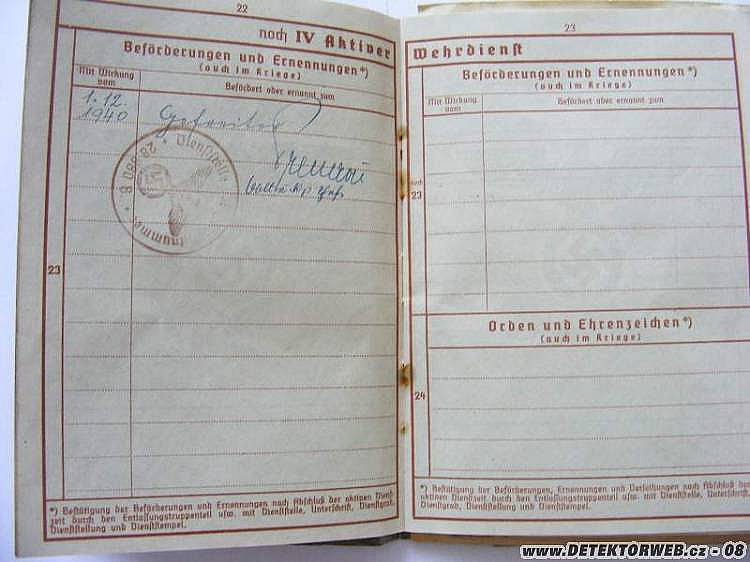 22
noch IV Aktiver
Beförderungen und Ernennungen*)
(auch im Kriege)
Mit Wirkung vom
Befördert oder ernannt zum
1.12.
1940
Gefreiter
Dienststelle
nummer
23
*) Bestätigung der Beförderungen und Ernennungen nach Abschluß der aktiven Dienst-
zeit durch den Entlassungstruppenteil usw. mit Dienststelle, Unterschrift, Dienstgrad,
Dienststellung und Dienststempel.
23
Wehrdienst
Beförderungen und Ernennungen*)
(auch im Kriege)
Mit Wirkung vom
Befördert oder ernannt zum
noch
23
Orden und Ehrenzeichen*)
(auch im Kriege)
24
*) Bestätigung der Beförderungen, Ernennungen und Verleihungen nach Abschluß der
aktiven Dienstzeit durch den Entlassungstruppenteil usw. mit Dienststelle, Unterschrift,
Dienstgrad, Dienststellung und Dienststempel.
www.DETEKTORWEB.cz - 08